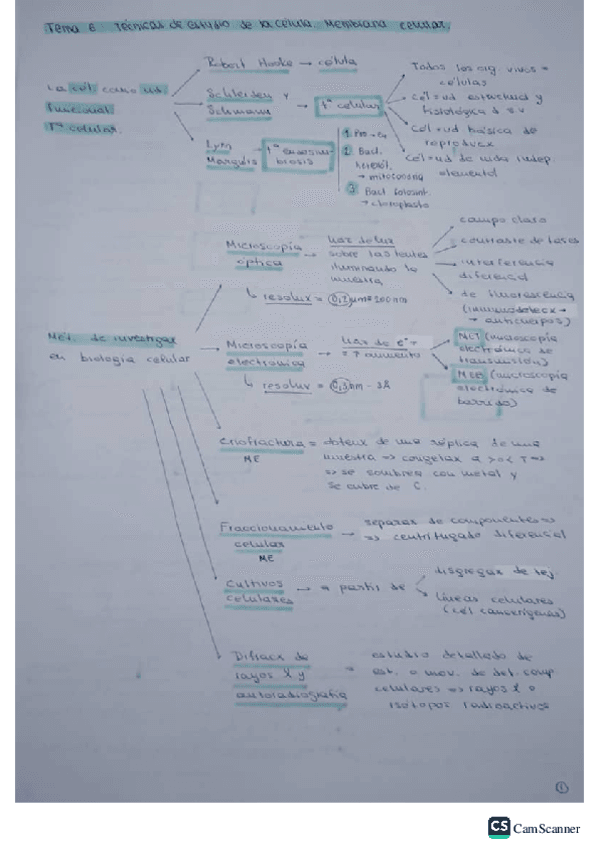 Tema 6. Técnicas de estudio de la célula. Membrana celular.
La cél. como ud.
funcional
Tª celular.
Robert Hooke → célula
Schleiden y
Schwann → tª celular
Todos los org. vivos =
células
cél = ud estructural y
fisiológica
cél = ud básica de
reproducx
cél = ud de vida indep.
elemental
Lynn
Margulis → tª endosim-
biosis
1
2 Bact.
→ mitocondria
3 Bact fotosint.
→ cloroplasto
Mét. de investigac
en biología celular
Microscopía
óptica → haz de luz
sobre las lentes
iluminando la
muestra
↳ resolux = 0,2 µm = 200 nm
campo claro
contraste de fases
interferencia
diferencial
de fluorescencia
(inmunodetecx →
→ anticuerpos)
Microscopía
electrónica → haz de e⁻ =
= ↑ aumento
↳ resolux = 0,3 nm - 3Å
MET (microscopía
electrónica de
transmisión)
MEB (microscopía
electrónica de
barrido)
Criofractura = obtenx de una réplica de una
ME
muestra => congelax a
=> se sombrea con metal y
se cubre de C.
Fraccionamiento
celular
ME
→ separax de componentes =>
=> centrifugado diferencial
Cultivos
celulares → a partir de
disgregax de tej
líneas celulares
(cél cancerígenas)
Difracx de
rayos X y
autorradiografía
= estudio detallado de
est. o mov. de det. comp
celulares => rayos X o
isótopos radioactivos
1
CS CamScanner